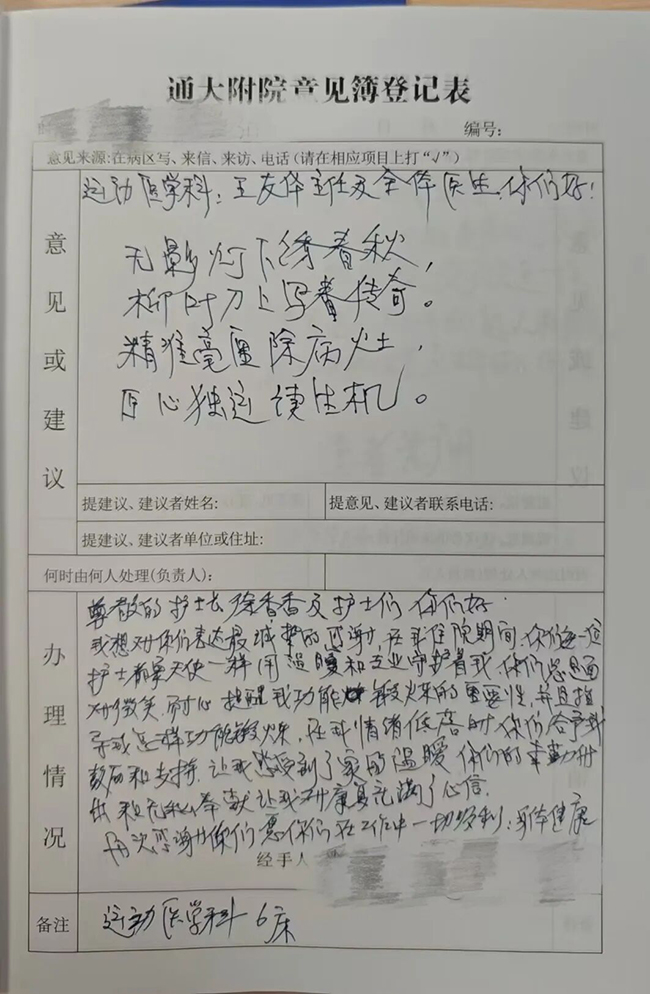 通大附院意见簿登记表
编号:
意见来源:在病区写、来信、来访、电话(请在相应项目上打“√”)
意见或建议
运动医学科:王友华主任及全体医生,你们好!
无影灯下绣春秋,
柳叶刀上写着传奇。
精准毫厘除病灶,
匠心独运续生机。
提建议、建议者姓名:
提意见、建议者联系电话:
提建议、建议者单位或住址:
何时由何人处理(负责人):
办理情况
尊敬的护士长徐香香及护士们 你们好
我想对你们表达最诚挚的感谢,在我住院期间,你们每一位
护士都像天使一样用温暖和专业守护着我,你们总是面
对微笑,耐心提醒我功能锻炼的重要性,并且指
导我怎样功能锻炼,在我情绪低落时你们给予我
鼓励和支持,让我感受到了家的温暖 你们的辛勤付
出和无私奉献让我对康复充满了心信.
再次感谢你们 愿你们在工作中一切顺利;身体健康
经手人
备注
运动医学科 6床